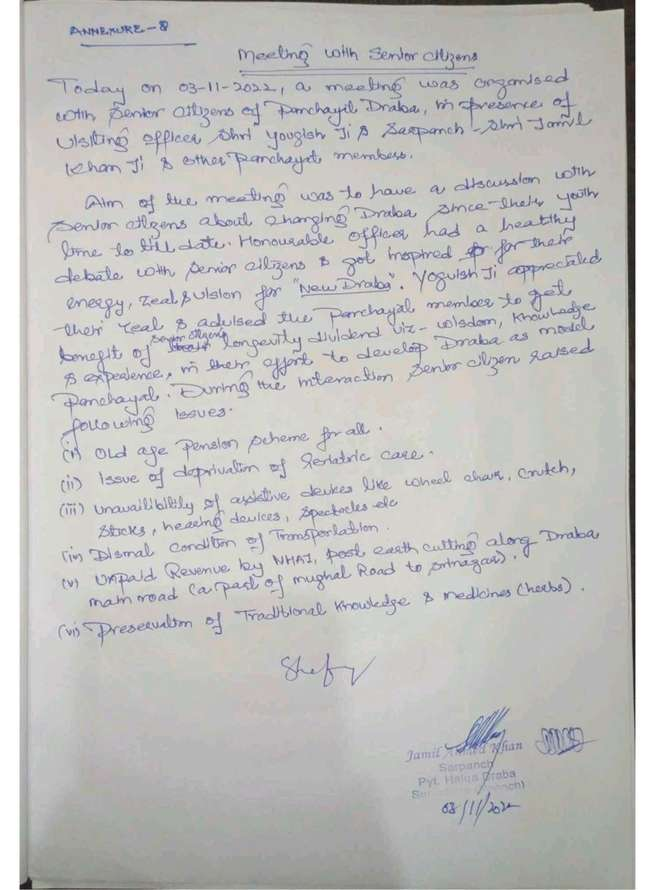 ANNEXURE-8
Meeting with Senior citizens
Today on 03-11-2022, a meeting was organised
with Senior citizens of Panchayat Draba, in presence of
visiting officer Shri Yougish Ji & Sarpanch - Shri Jamil
Khan Ji & other Panchayat members.
Aim of the meeting was to have a discussion with
Senior citizens about changing Draba since their youth
time to till date. Honourable officer had a healthy
debate with Senior citizens & got inspired for their
energy, zeal & vision for "New Draba". Yoguish Ji appreciated
their zeal & advised the panchayat member to get
benefit of senior citizens longevity dividend viz- wisdom, knowledge
& experience, in their effort to develop Draba as model
Panchayat. During the interaction senior citizen raised
following issues.
(i) Old age Pension scheme for all.
(ii) Issue of deprivation of Geriatric care.
(iii) unavailibility of assistive devices like wheel chair, crutch,
sticks, hearing devices, spectacles etc
(iv) Dismal condition of Transportation.
(v) Unpaid Revenue by NHAI, post earth cutting along Draba
main road (a part of mughal Road to srinagar).
(vi) Preservation of Traditional knowledge & medicines (herbs).
Jamil Ahmed Khan
Sarpanch
Pyt. Halqa Draba
03/11/2022